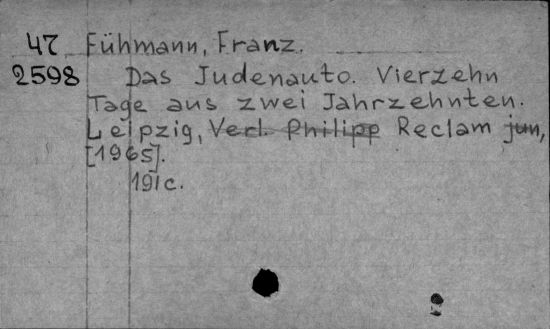 47 Fühmann, Franz.
2598 Das Judenauto. Vierzehn
Tage aus zwei Jahrzehnten.
Leipzig, Verl. Philipp Reclam jun,
[1965].
191c.